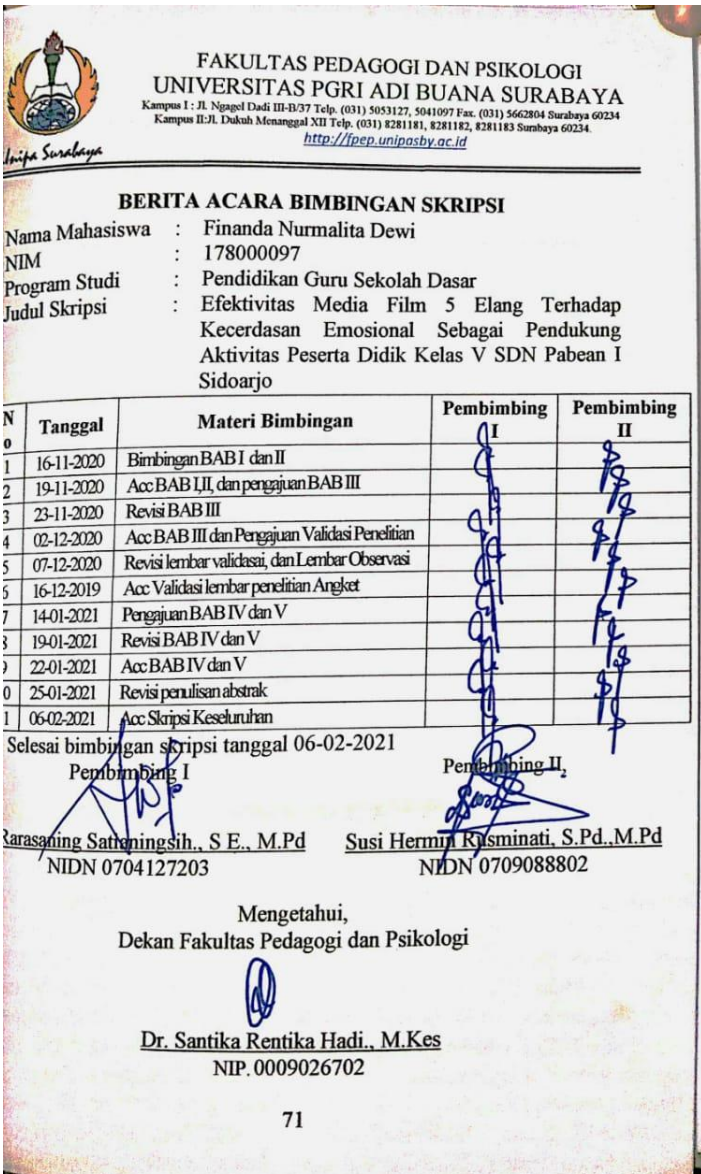 FAKULTAS PEDAGOGI DAN PSIKOLOGI
UNIVERSITAS PGRI ADI BUANA SURABAYA
Kampus I : Jl. Ngagel Dadi III-B/37 Telp. (031) 5053127, 5041097 Fax. (031) 5662804 Surabaya 60234
Kampus II:Jl. Dukuh Menanggal XII Telp. (031) 8281181, 8281182, 8281183 Surabaya 60234.
http://fpep.unipasby.ac.id
Unipa Surabaya
BERITA ACARA BIMBINGAN SKRIPSI
Nama Mahasiswa : Finanda Nurmalita Dewi
NIM : 178000097
Program Studi : Pendidikan Guru Sekolah Dasar
Judul Skripsi : Efektivitas Media Film 5 Elang Terhadap
Kecerdasan Emosional Sebagai Pendukung
Aktivitas Peserta Didik Kelas V SDN Pabean I
Sidoarjo
No Tanggal Materi Bimbingan Pembimbing I Pembimbing II
1 16-11-2020 Bimbingan BAB I dan II
2 19-11-2020 Acc BAB I,II, dan pengajuan BAB III
3 23-11-2020 Revisi BAB III
4 02-12-2020 Acc BAB III dan Pengajuan Validasi Penelitian
5 07-12-2020 Revisi lembar validasai, dan Lembar Observasi
6 16-12-2019 Acc Validasi lembar penelitian Angket
7 14-01-2021 Pengajuan BAB IV dan V
8 19-01-2021 Revisi BAB IV dan V
9 22-01-2021 Acc BAB IV dan V
0 25-01-2021 Revisi penulisan abstrak
1 06-02-2021 Acc Skripsi Keseluruhan
Selesai bimbingan skripsi tanggal 06-02-2021
Pembimbing I Pembimbing II,
Rarasaning Satianingsih., S E., M.Pd Susi Hermin Rusminati, S.Pd.,M.Pd
NIDN 0704127203 NIDN 0709088802
Mengetahui,
Dekan Fakultas Pedagogi dan Psikologi
Dr. Santika Rentika Hadi., M.Kes
NIP. 0009026702
71